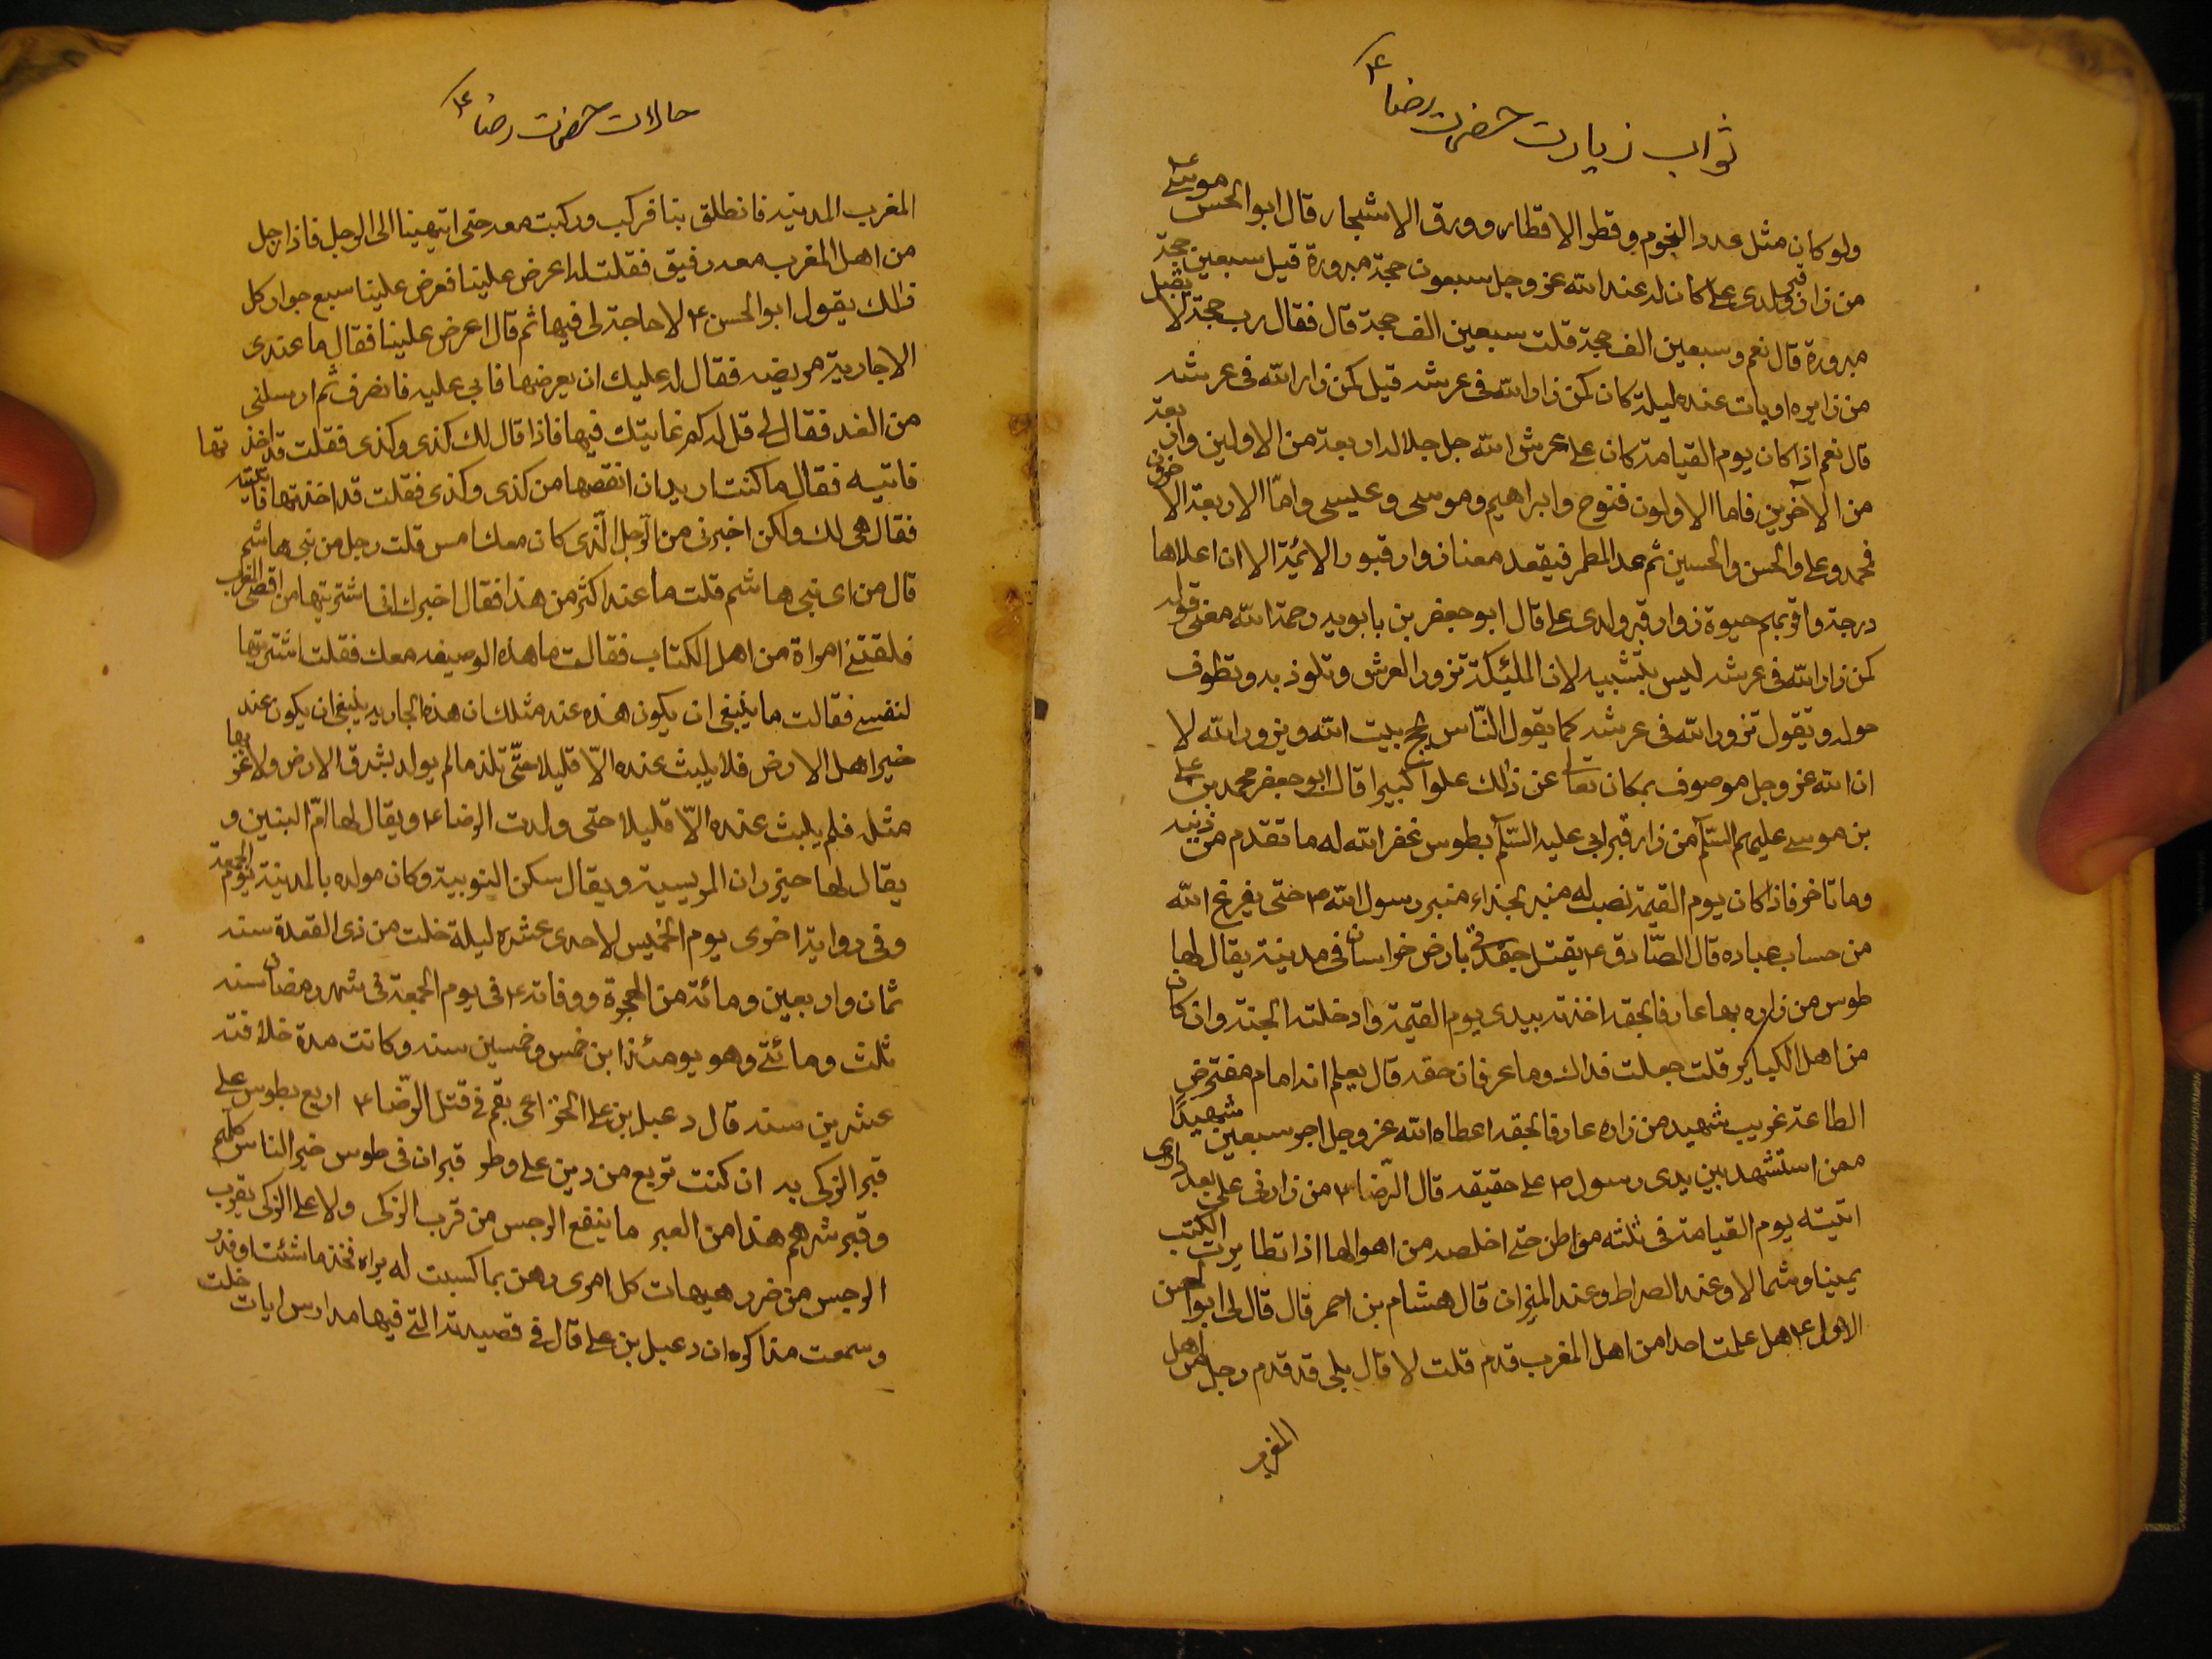 ثواب زیارت حضرت رضا ع
ولو كان مثل عدد النجوم وقطر الاقطار وورق الاشجار قال ابو الحسن موسى ع
من زار قبر ولدى على كان له عند الله عز وجل سبعون حجة مبرورة قيل سبعين حجة
مبرورة قال نعم وسبعين الف حجة قلت سبعين الف حجة قال فقال رب حجة لا تقبل
من زاره او بات عنده ليلة كان كمن زار الله فى عرشه قيل كمن زار الله فى عرشه
قال نعم اذا كان يوم القيامة كان على عرش الله جل جلاله اربعة من الاولين واربعة
من الآخرين فاما الاولون فنوح وابراهيم وموسى وعيسى وامّا الاربعة الاخرون
فمحمد وعلى والحسن والحسين ثم يمد المطمر فيقعد معنا زوار قبور الائمّة الا ان اعلاها
درجة واقربهم حبوة زوار قبر ولدى على قال ابو جعفر بن بابويه رحمة الله معنى قوله
كمن زار الله فى عرشه ليس بتشبيه لان الملئكة تزور العرش وتلوذ به وتطوف
حوله وتقول تزور الله فى عرشه كما يقول النّاس نحج بيت الله ونزور الله لا
ان الله عز وجل موصوف بمكان تعالى عن ذلك علوا كبيرا قال ابو جعفر محمد بن على
بن موسى عليهم السّلم من زار قبر ابى عليه السّلم بطوس غفر الله له ما تقدم من ذنبه
وما تاخر فاذا كان يوم القيمة نصب له منبر بحذاء منبر رسول الله ص حتى يفرغ الله
من حساب عباده قال الصّادق ع يقتل حفدتى بارض خراسان فى مدينة يقال لها
طوس من زاره بها عارفا بحقه اخذته بيدى يوم القيمة وادخلته الجنة وان كان
من اهل الكبائر قلت جعلت فداك وما عرفان حقه قال يعلم انه امام مفترض
الطاعة غريب شهيد من زاره عارفا بحقه اعطاه الله عز وجل اجر سبعين شهيدًا
ممن استشهد بين يدى رسول ص على حقيقه قال الرّضا ع من زارنى على بعد دارى
اتيته يوم القيامة فى ثلثه مواطن حتى اخلصه من اهوالها اذا تطايرت الكتب
يمينا وشمالا وعند الصراط وعند الميزان قال هشام بن احمر قال قال لى ابو الحسن
الاول ع هل علمت احدا من اهل المغرب قدم قلت لا قال بلى قد قدم رجل من اهل
المغرب
حالات حضرت رضا ع
المغرب المدينة فانطلق بنا فركب وركبت معه حتى انتهينا الى الرجل فاذا رجل
من اهل المغرب معه رقيق فقلت له اعرض علينا فعرض علينا سبع جوار كل
ذلك يقول ابو الحسن ع لا حاجة لى فيها ثم قال اعرض علينا فقال ما عندى
الا جارية مريضه فقال له عليك ان يعرضها فابى عليه فانصرف ثم ارسلنى
من الغد فقال لى قل له كم غايتك فيها فاذا قال لك كذى وكذى فقلت قد اخذتها
فاتيته فقال ما كنت اريد ان انقصها من كذى وكذى فقلت قد اخذتها
فقال هى لك ولكن اخبرنى من الرّجل الّذى كان معك امس قلت رجل من بنى هاشم
قال من اى بنى هاشم قلت ما عند اكثر من هذا فقال اخبرك انى اشتريتها من اقصى المغرب
فلقتنى امراة من اهل الكتاب فقالت ما هذه الوصيفه معك فقلت اشتريتها
لنفسى فقالت ما ينبغى ان يكون هذه عند مثلك ان هذه الجاريه ينبغى ان يكون عند
خير اهل الارض فلا يلبث عنده الاّ قليلا حتّى تلد ما لم يولد بشرق الارض ولا غربها
مثله فلم يلبث عنده الاّ قليلا حتى ولدت الرضا ع ويقال لها امّ البنين و
يقال لها خيزران المريسية ويقال سكن النوبية وكان مولده بالمدينة يوم الجمعة
وفى رواية اخرى يوم الخميس لاحدى عشره ليلة خلت من ذى القعدة سنه
ثمان واربعين ومائة من الهجرة ووفاته ع فى يوم الجمعة فى شهر رمضان سنه
ثلث ومائتى وهو يومئذ ابن خمس وخمسين سنه وكانت مدة خلافته
عشرين سنه قال دعبل بن على الخزاعى بقم فى قتل الرّضا ع اربع بطوس على
قبر الزكى به ان كنت تربع من دين على وطر قبران فى طوس خير الناس كلهم
وقبر شرهم هذا من العبر ما ينفع الرجس من قرب الزكى ولا على الزكى بقرب
الرجس من ضرر هيهات كل امرى رهن بما كسبت له يداه فخذ ما شئت او فذر
وسمعت مذاكره ان دعبل بن على قال فى قصيدته التى فيها مدارس ايات خلت